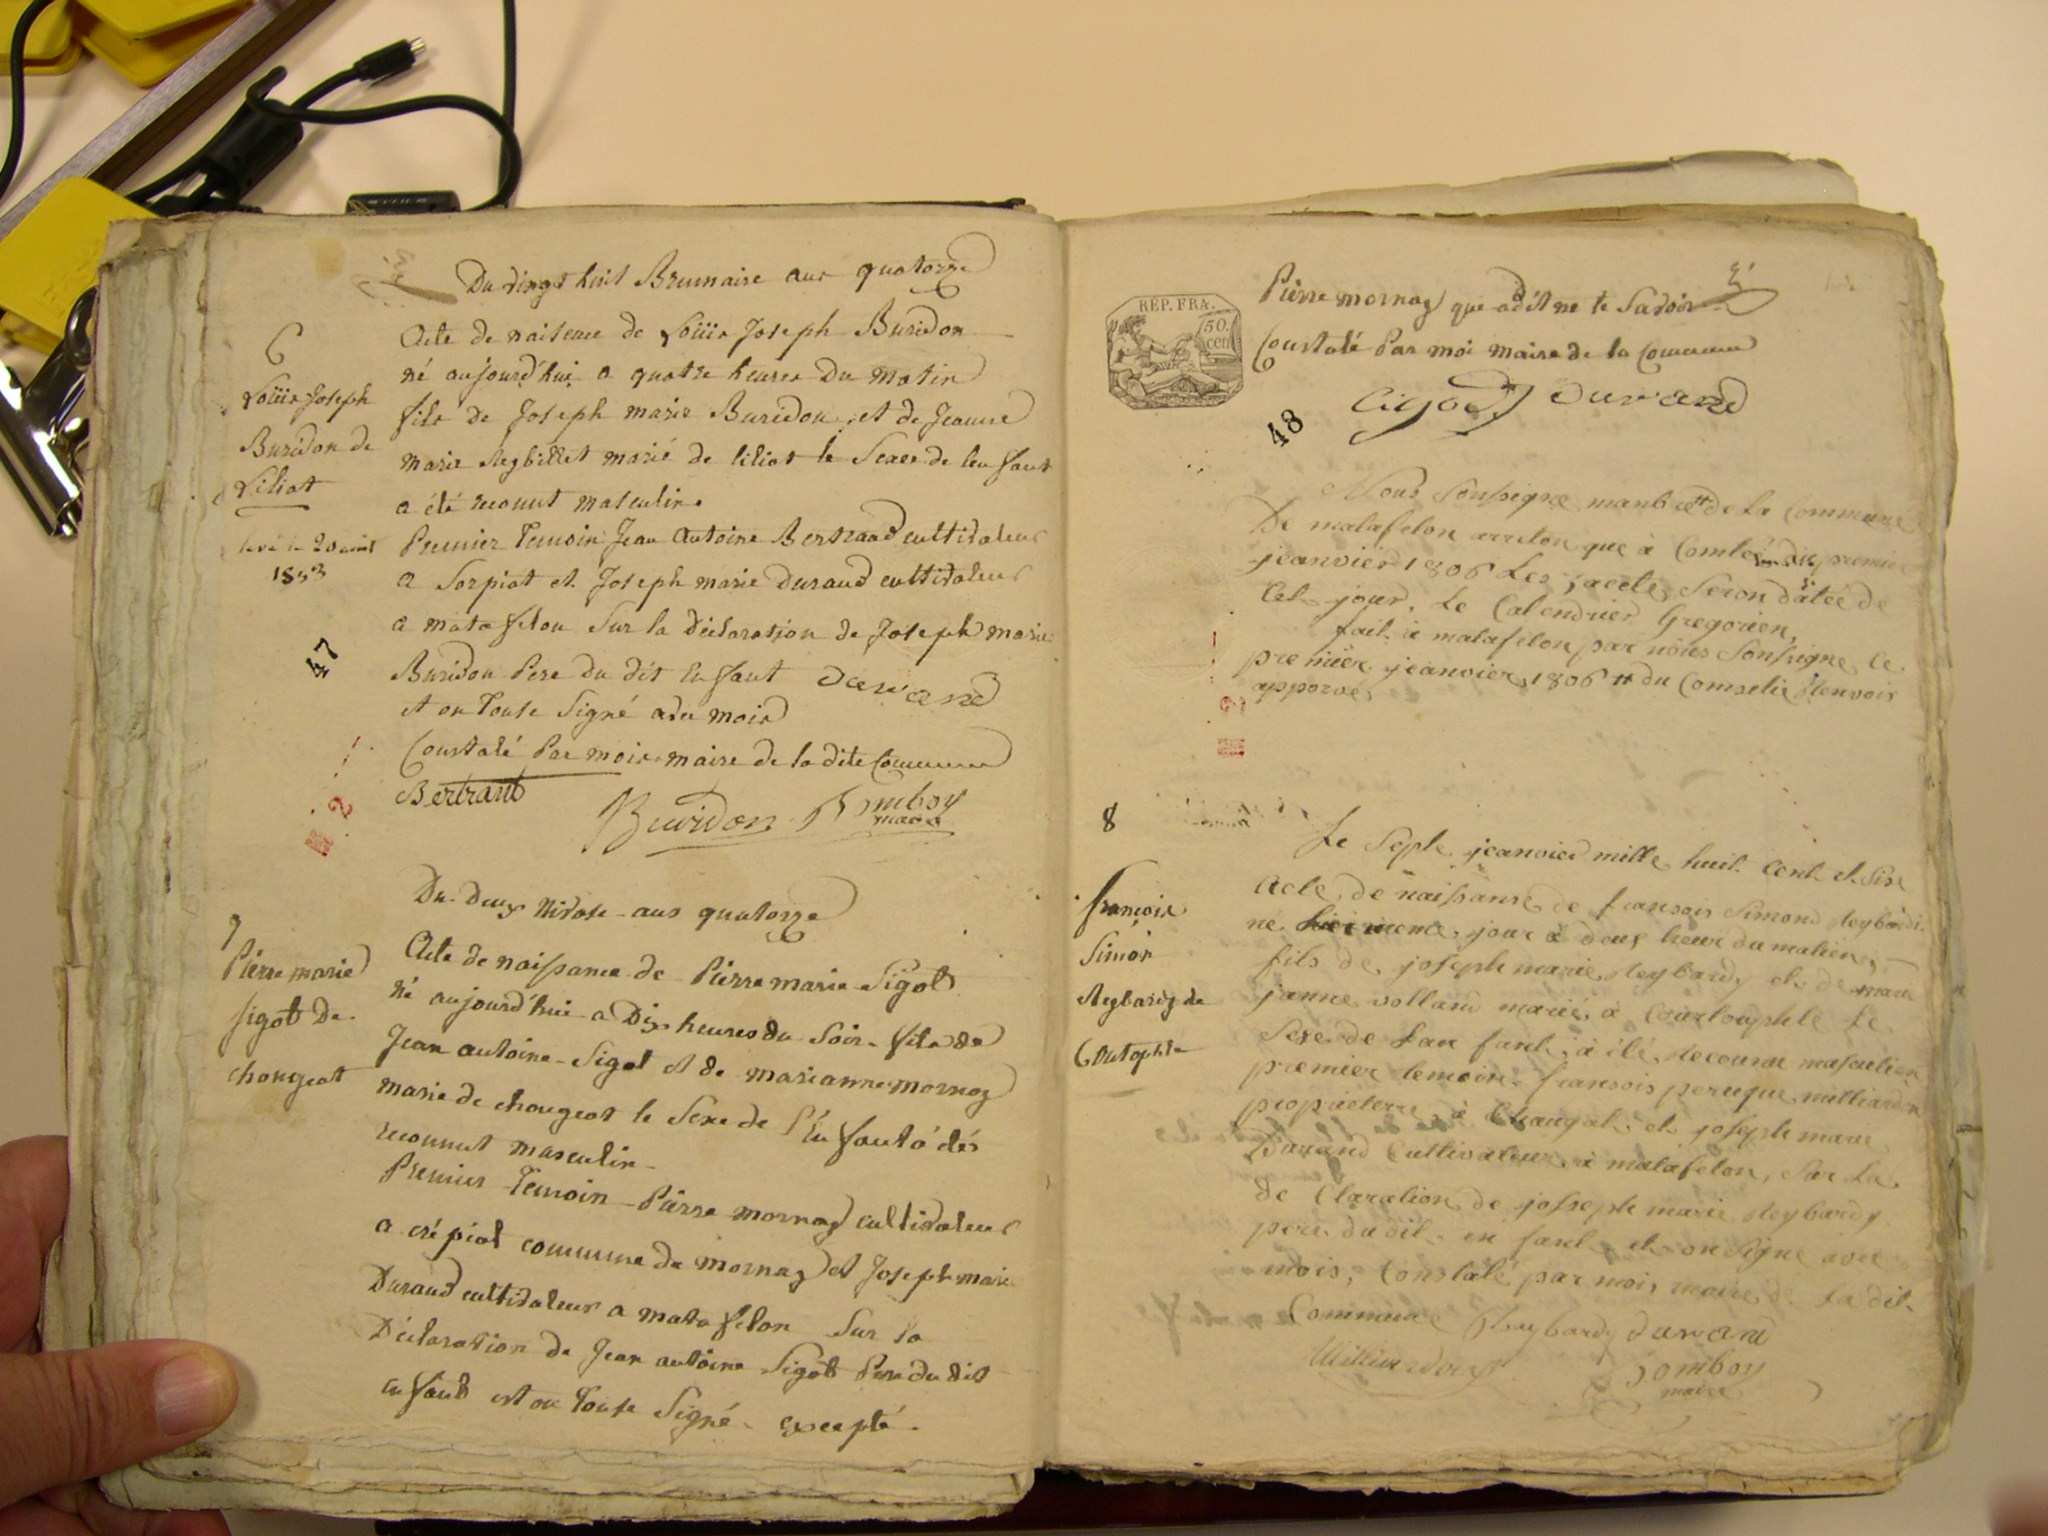 Du vingt huit Brumaire ans quatorze
6
Loüis Joseph
Buridon de
Liliat
levé le 20 août
1853
Acte de naisence de Loüis Joseph Buridon
né aujourd'hui a quatre heures Du matin
fils de Joseph marie Buridon et de Jeanne
marie Reybillet marié de liliat le Sexe de lenfant
a été reconut masculin.
Premier Temoin Jean Antoine Bertrand cultivateur
a Sorpiat et Joseph marie Durand cultivateur
a matafelon Sur la Déclaration de Joseph marie
Buridon Pere du dit Enfant Durand
et on Touse Signé avec moid
Constaté Par mois maire de la dite Commune
Bertrant
Buridon Bomboy
maire
47
Du Deux Nivose ans quatorze
7
Pierre marie
Sigot De
chougeat
Acte de naissance de Pierre marie Sigot
né aujourd'hui a Dix heures du Soir fils de
Jean antoine Sigot et de marianne mornay
marie de chougeat le Sexe de l'Enfant a étés
reconnut masculin
Premier Temoin Pierre mornay cultivateur
a crépiat commune de mornay et Joseph marie
Durand cultivateur a matafelon Sur la
Déclaration de Jean antoine Sigot Pere du dit
enfant et on Touse Signé excepté
REP. FRA.
50.
cen
Pierre mornay que a dit ne le Savoir
Constaté Par moi maire de la Commune
Cigod Durand
48
Nous Sousigne manbre de La Commune
De matafelon arreton que à Comté du premier
jeanvier 1806 Les acte Seron datée de
Cet jour. Le Calendrier Gregorien,
fait à matafelon par nous Sousigne ce
premier jeanvier 1806 du Conselie
apprové
8
françois
Simon
Reybardy de
Coutophle
Le Septe jeanvier mille huit Cent et Six
Acte de naissanse de fransois Simond Reybardi
né hier meme jour à deux heur du matien,
fils de joseph marie Reybardy et de marie
janne volland marié à Courtouphle Le
Sexe de Lan fant à été Reconnu masculien
premier temoin fransois peruque milliardon
propriéterre à Chaugat et joseph marie
Durand Cultivateur à matafelon, Sur La
de Claration de josseph marie Reybardy
pere du dit en fant et on Signe avec
mois, Constaté par mois maire de La dit
Commune Reybardy Durand
Milliardon
Bomboy
maire